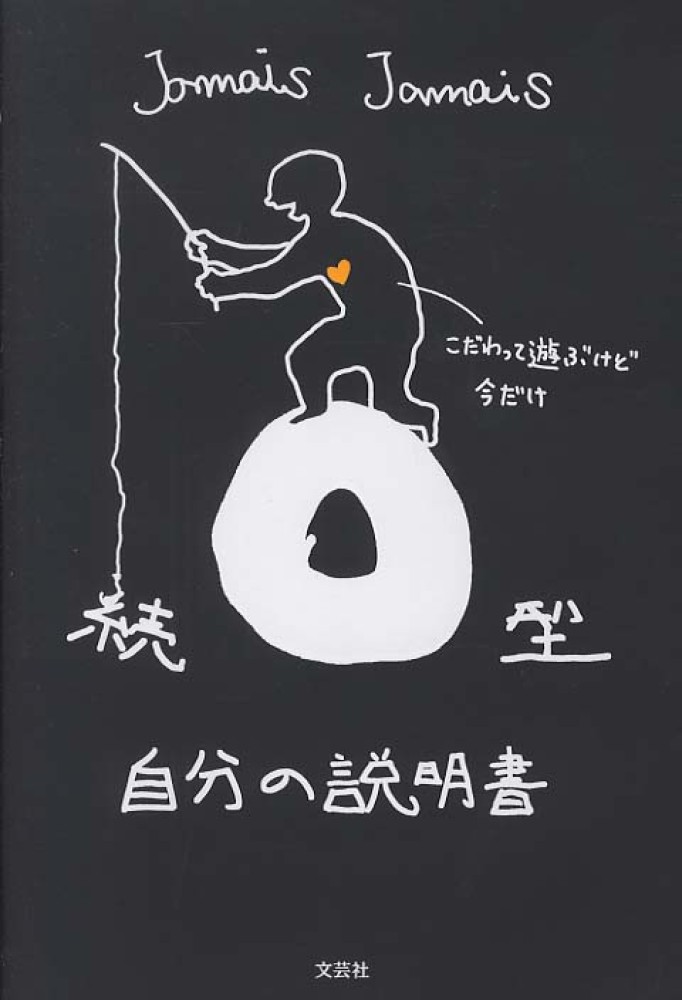 Jamais Jamais
こだわって遊ぶけど
今だけ
続 O 型
自分の説明書
文芸社